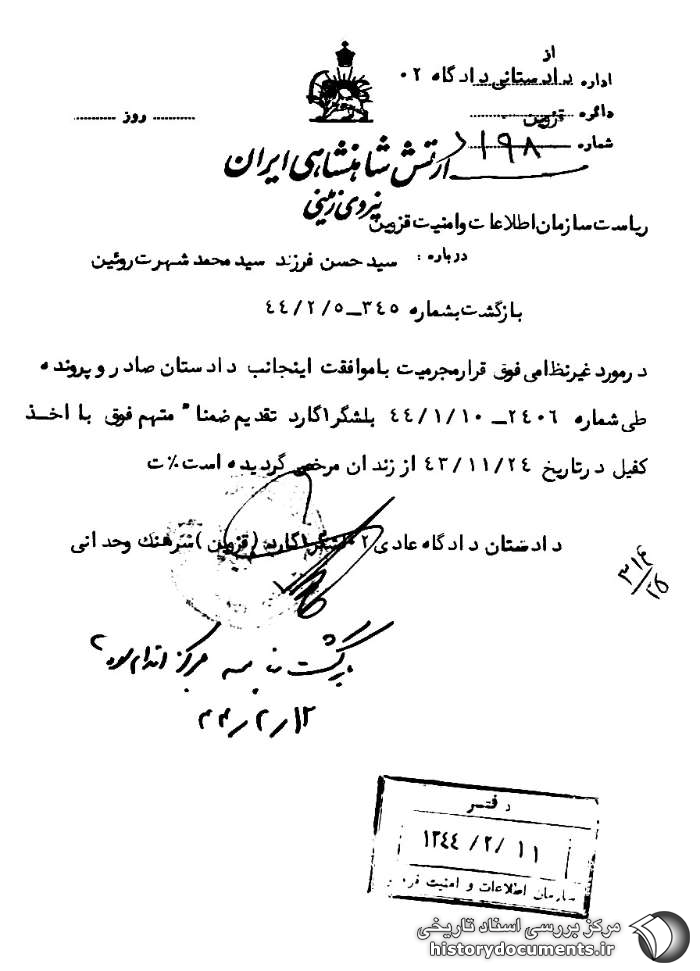 از
اداره دادستانی دادگاه ۰۲
دائره قزوین
شماره ۱۹۸
روز
ارتش شاهنشاهی ایران
نیروی زمینی
ریاست سازمان اطلاعات وامنیت قزوین
درباره : سید حسن فرزند سید محمد شهرت روئین
بازگشت بشماره ۳٤٥ــ ٤٤/۲/٥
درمورد غیرنظامی فوق قرارمجرمیت باموافقت اینجانب دادستان صادر و پرونده
طی شماره ۲٤۰٦ــ ٤٤/۱/۱۰ بلشگر۱گارد تقدیم ضمنا" متهم فوق با اخذ
کفیل درتاریخ ٤۳/۱۱/۲٤ از زندان مرخص گردیده است٪ت
دادستان دادگاه عادی ۲ لشگر۱گارد (قزوین) سرهنگ وحدانی
۳۱۴
۲۵
مرکز اقدام
۴۴/۲/۱۲
دفتر
۱۳٤٤/۲/۱۱
سازمان اطلاعات و امنیت
مرکز بررسی اسناد تاریخی
historydocuments.ir